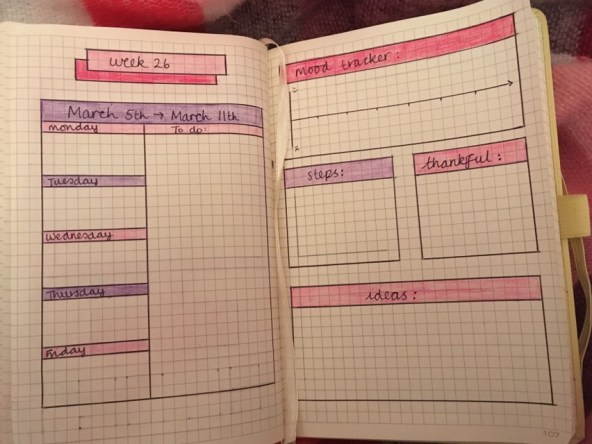 Week 26
March 5th → March 11th
monday
To do:
Tuesday
Wednesday
Thursday
Friday
mood tracker:
steps:
thankful:
ideas:
107